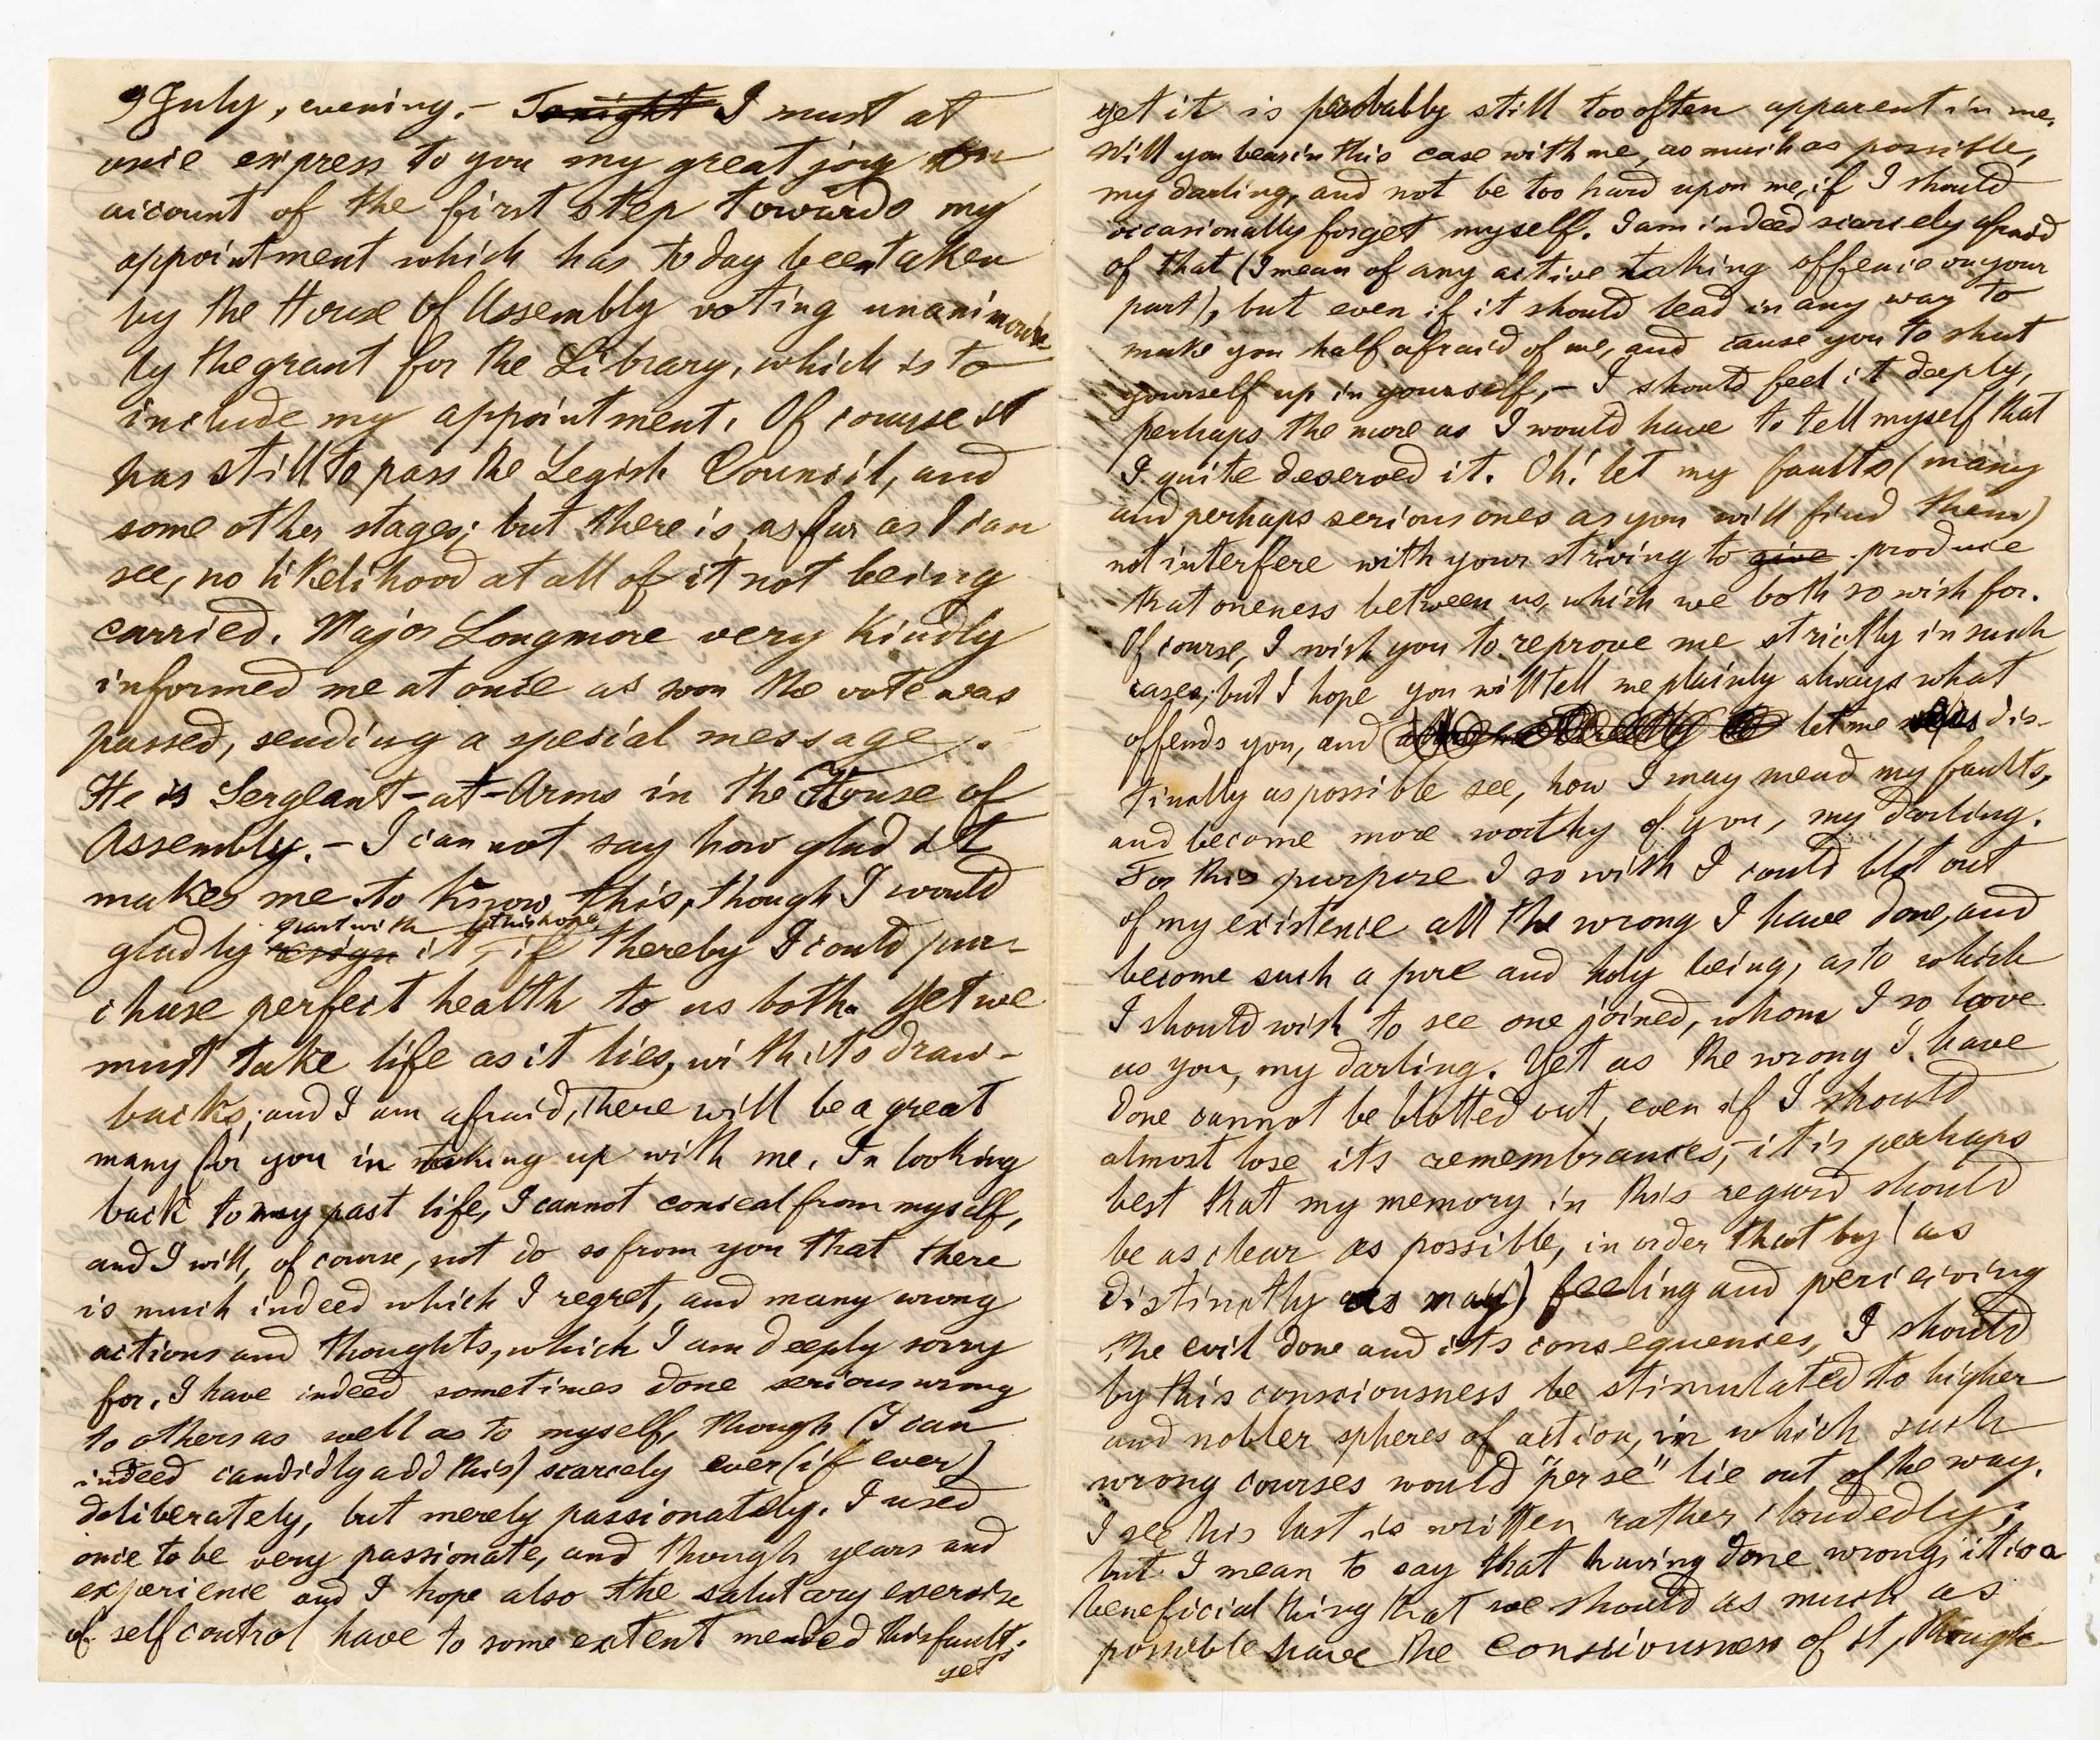 9 July, evening. – Tonight I must at
once express to you my great joy on
account of the first step towards my
appointment which has today been taken
by the House of Assembly voting unanimous
ly the grant for the Library, which is to
include my appointment. Of course it
has still to pass the Legisl. Council, and
some other stages; but there is, as far as I can
see, no likelihood at all of it not being
carried. Major Longmore very kindly
informed me at once as soon the vote was
passed, sending a special message.
He is Sergeant-at-Arms in the House of
Assembly. – I can not say how glad it
makes me to know this, though I would
part with this hope
gladly resign it, – if thereby I could pur-
chase perfect health to us both. Yet we
must take life as it lies, with its draw-
backs; and I am afraid, there will be a great
many for you in taking up with me. In looking
back to my past life, I cannot conceal from myself,
and I will, of course, not do so from you that there
is much indeed which I regret, and many wrong
actions and thoughts, which I am deeply sorry
for. I have indeed sometimes done serious wrong
to others as well as to myself, though (I can
indeed candidly add this) scarcely ever (if ever)
deliberately, but merely passionately. I used
once to be very passionate, and though years and
experience and I hope also the salutary exercise
of self control have to some extent mended this fault;
yet
yet it is probably still too often apparent in me.
Will you bear in this case with me, as much as possible,
my darling, and not be too hard upon me, if I should
occasionally forget myself. I am indeed scarcely afraid
of that (I mean of any active taking offence on your
part), but even if it should lead in any way to
make you half afraid of me, and cause you to shut
yourself up in yourself, – I should feel it deeply,
perhaps the more as I would have to tell myself that
I quite deserved it. Oh! let my faults (many
and perhaps serious ones as you will find them)
not interfere with your striving to give produce
that oneness between us, which we both so wish for.
Of course, I wish you to reprove me strictly in such
cases; but I hope you will tell me plainly always what
offends you, and let me dis-
tinctly as possible see, how I may mend my faults,
and become more worthy of you, my darling.
For this purpose I so wish I could blot out
of my existence all the wrong I have done, and
become such a pure and holy being, as to which
I should wish to see one joined, whom I so love
as you, my darling. Yet as the wrong I have
done cannot be blotted out, even if I should
almost lose its remembrances, – it is perhaps
best that my memory in this regard should
be as clear as possible, in order that by (as
distinctly as may) feeling and perceiving
the evil done and its consequences, I should
by this consciousness be stimulated to higher
and nobler spheres of action, in which such
wrong courses would "per se" lie out of the way.
I see this last is written rather cloudedly;
but I mean to say that having done wrong, it is a
beneficial thing that we should as much as
possible have the consciousness of it, though